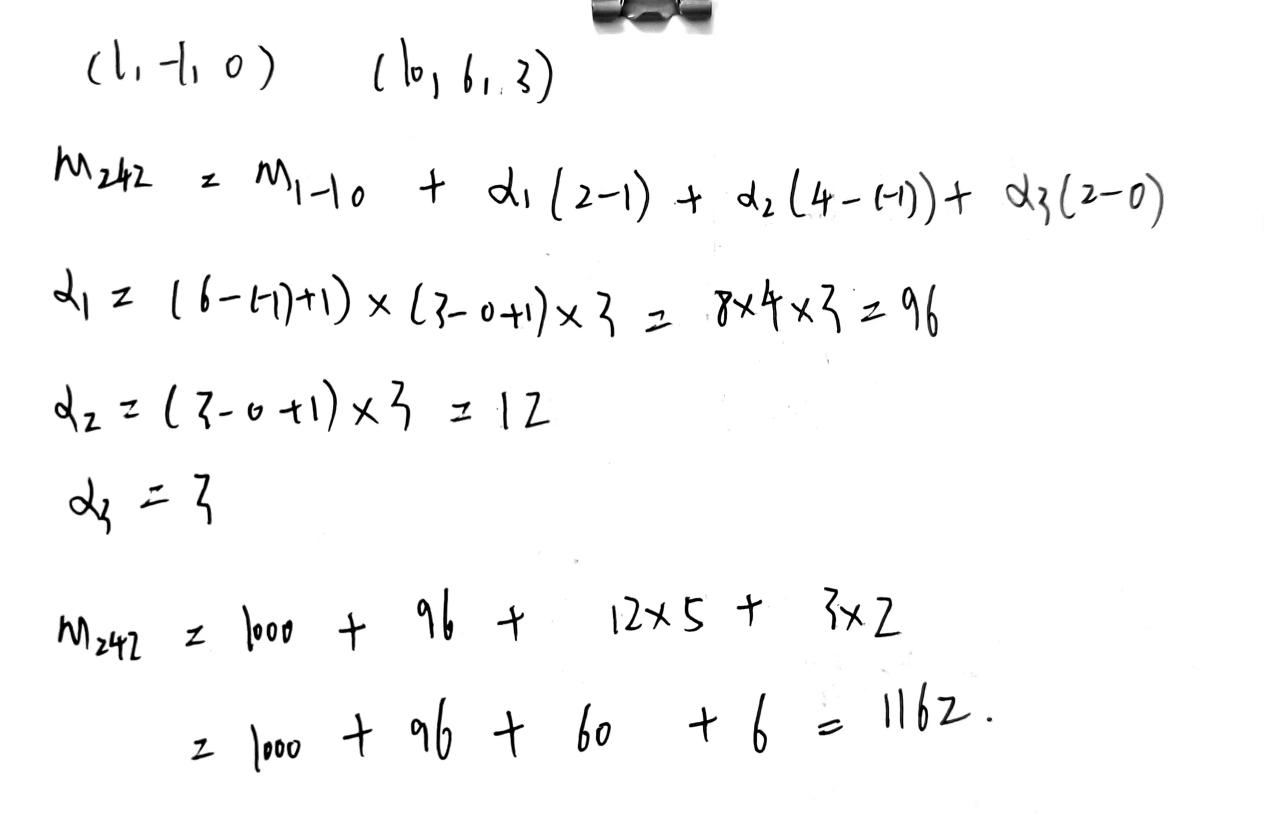 (1, -1, 0) (10, 6, 3)
m₂₄₂ = m₁₋₁₀ + α₁(2-1) + α₂(4-(-1)) + α₃(2-0)
α₁ = (6-(-1)+1) × (3-0+1) × 3 = 8×4×3 = 96
α₂ = (3-0+1) × 3 = 12
α₃ = 3
m₂₄₂ = 1000 + 96 + 12×5 + 3×2
= 1000 + 96 + 60 + 6 = 1162.